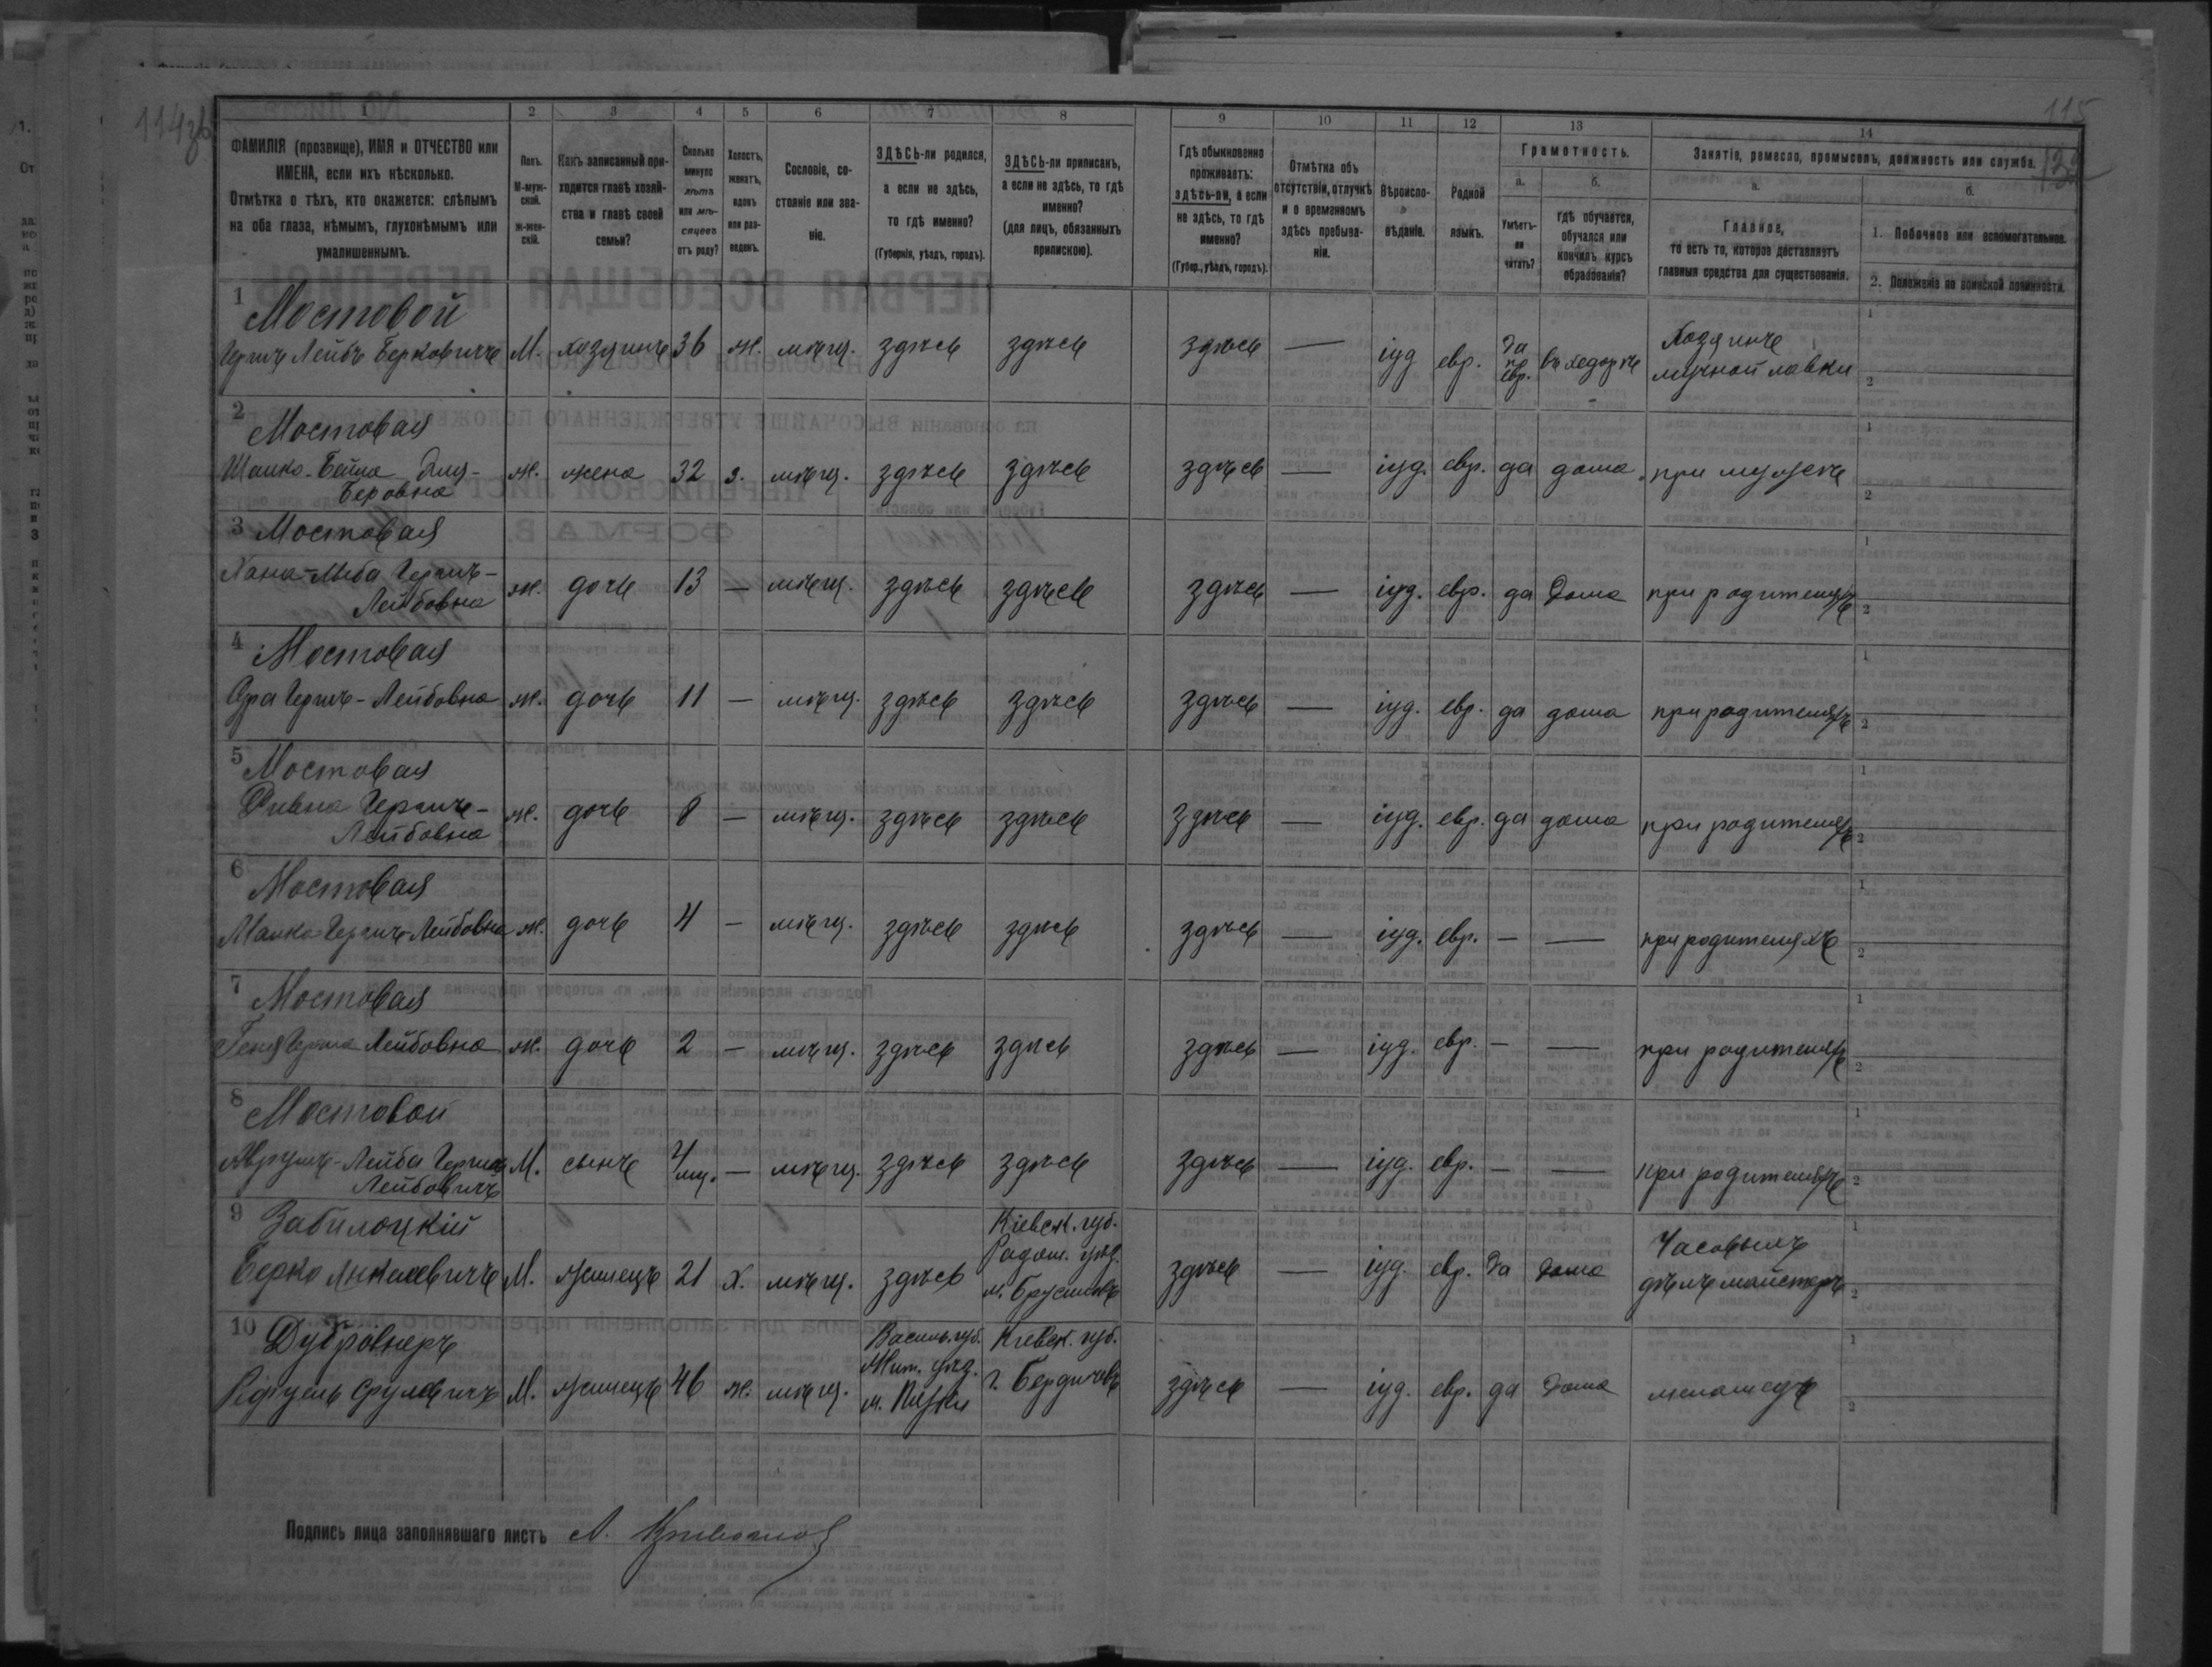 114зв
115
132
1 2 3 4 5 6 7 8 9 10 11 12 13 14
ФАМИЛІЯ (прозвище), ИМЯ и ОТЧЕСТВО или ИМЕНА, если ихъ нѣсколько.
Отмѣтка о тѣхъ, кто окажется: слѣпымъ на оба глаза, нѣмымъ, глухонѣмымъ или умалишеннымъ.
Полъ. М-мужской. Ж-женскій.
Какъ записанный приходится главѣ хозяйства и главѣ своей семьи?
Сколько минуло лѣтъ или мѣсяцевъ отъ роду?
Холостъ, женатъ, вдовъ или разведенъ.
Сословіе, состояніе или званіе.
ЗДѢСЬ-ли родился, а если не здѣсь, то гдѣ именно? (Губернія, уѣздъ, городъ).
ЗДѢСЬ-ли приписанъ, а если не здѣсь, то гдѣ именно? (для лицъ, обязанныхъ припискою).
Гдѣ обыкновенно проживаетъ: здѣсь-ли, а если не здѣсь, то гдѣ именно? (Губер., уѣздъ, городъ).
Отмѣтка объ отсутствіи, отлучкѣ и о временномъ здѣсь пребываніи.
Вѣроисповѣданіе.
Родной языкъ.
Грамотность.
а. Умѣетъ-ли читать?
б. гдѣ обучается, обучался или кончилъ курсъ образованія?
Занятіе, ремесло, промыселъ, должность или служба.
а. Главное, то есть то, которое доставляетъ главныя средства для существованія.
б.
1. Побочное или вспомогательное.
2. Положеніе по воинской повинности.
1 Мостовой
Гершъ Лейбъ Берковичъ М. хозяинъ 36 ж. мѣщ. здѣсь здѣсь здѣсь — іуд евр. Да по евр. въ хедерѣ Хозяинъ мучной лавки
2 Мостовая
Бейла Беровна ж. жена 32 з. мѣщ. здѣсь здѣсь здѣсь — іуд. евр. да дома при мужѣ
3 Мостовая
Хана Гершъ-Лейбовна ж. дочь 13 — мѣщ. здѣсь здѣсь здѣсь — іуд. евр. да Дома при родителяхъ
4 Мостовая
Сура Гершъ-Лейбовна ж. дочь 11 — мѣщ. здѣсь здѣсь здѣсь — іуд. евр. да дома при родителяхъ
5 Мостовая
Гершъ-Лейбовна ж. дочь 8 — мѣщ. здѣсь здѣсь здѣсь — іуд. евр. да дома при родителяхъ
6 Мостовая
Малка Гершъ-Лейбовна ж. дочь 4 — мѣщ. здѣсь здѣсь здѣсь — іуд. евр. — — при родителяхъ
7 Мостовая
Геня Герша Лейбовна ж. дочь 2 — мѣщ. здѣсь здѣсь здѣсь — іуд. евр. — — при родителяхъ
8 Мостовой
Аврумъ-Лейба Гершъ Лейбовичъ М. сынъ 4 мц. — мѣщ. здѣсь здѣсь здѣсь — іуд. евр. — — при родителяхъ
9 Забилоцкій
Берко М. жилецъ 21 х. мѣщ. здѣсь Кіевск. губ. Радом. уѣз. м. Брусиловъ здѣсь — іуд. евр. Да дома Часовыхъ дѣлъ майстеръ
10 Дубровнеръ
Срулевичъ М. жилецъ 46 ж. мѣщ. губ. Жит. уѣз. м. Кіевск. губ. г. Бердичевъ здѣсь — іуд. евр. да Дома меламедъ
Подпись лица заполнявшаго листъ